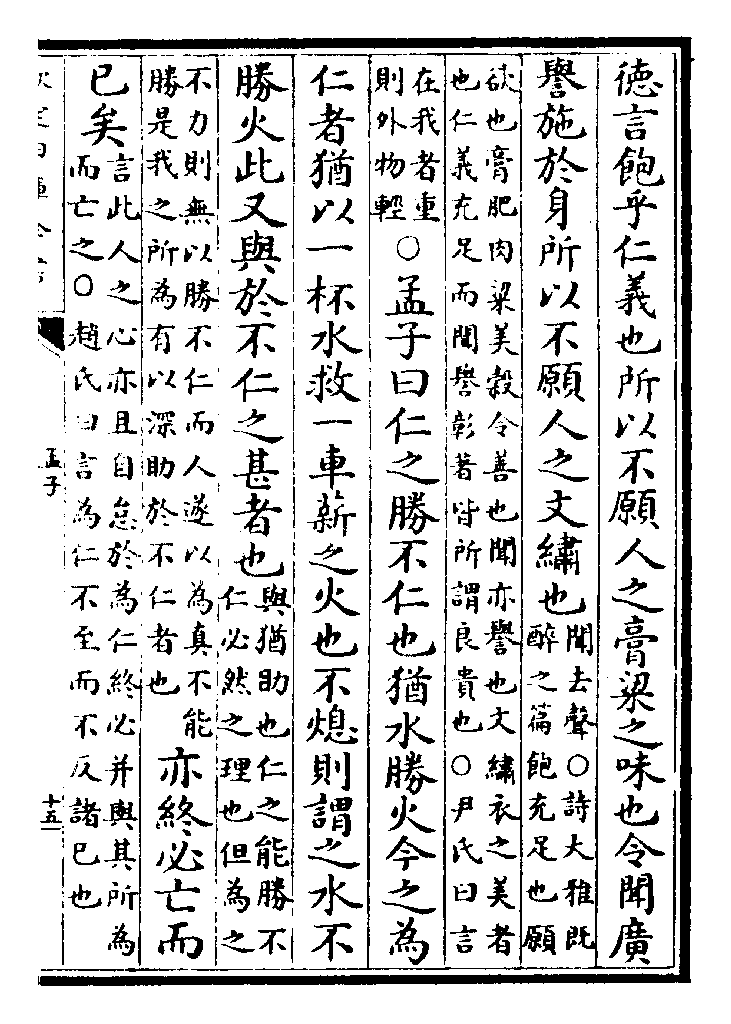 徳言飽乎仁義也所以不願人之膏粱之味也令聞廣
譽施於身所以不願人之文繡也
聞去聲○詩大雅既
醉之篇飽充足也願
欲也膏肥肉粱美穀令善也聞亦譽也文繡衣之美者
也仁義充足而聞譽彰著皆所謂良貴也○尹氏曰言
在我者重
則外物輕
○孟子曰仁之勝不仁也猶水勝火今之為
仁者猶以一杯水救一車薪之火也不熄則謂之水不
勝火此又與於不仁之甚者也
與猶助也仁之能勝不
仁必然之理也但為之
不力則無以勝不仁而人遂以為真不能
勝是我之所為有以深助於不仁者也
亦終必亡而
已矣
言此人之心亦且自怠於為仁終必并與其所為
而亡之○趙氏曰言為仁不至而不反諸己也
孟子
十五